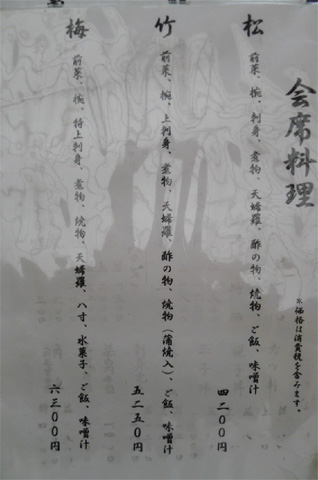 会席料理
※価格は消費税を含みます。
松
前菜、椀、刺身、煮物、天婦羅、酢の物、焼物、ご飯、味噌汁
四二〇〇円
竹
前菜、椀、上刺身、煮物、天婦羅、酢の物、焼物(蒲焼入)、ご飯、味噌汁
五二五〇円
梅
前菜、椀、特上刺身、煮物、焼物、天婦羅、八寸、水菓子、ご飯、味噌汁
六三〇〇円